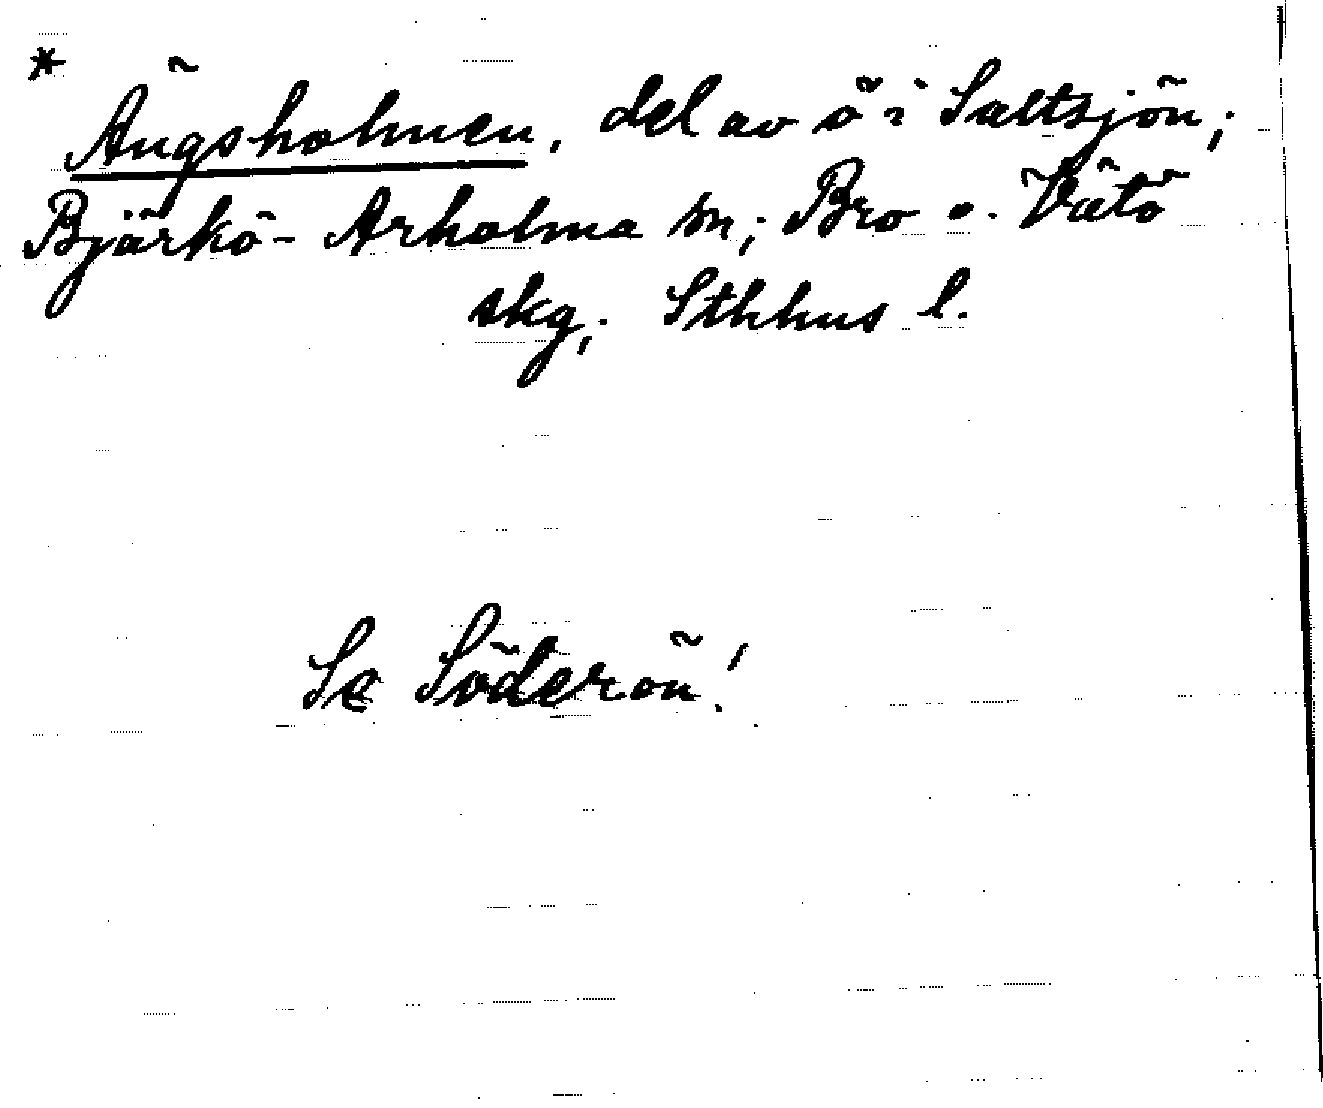 * Ängsholmen, del av ö i Saltsjön;
Björkö-Arholma sn; Bro o. Vätö
skg; Sthhus l.
Se Söderön!